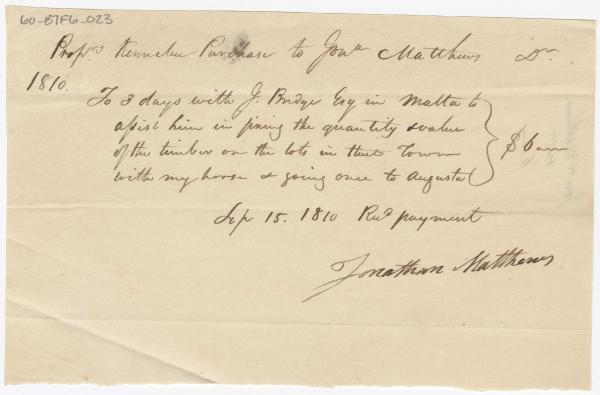 60-B7F6-023
Proprs Kennebec Purchase to Jona Matthews Dr
1810.
To 3 days with J. Bridge Esq in Malta to
assist him in fixing the quantity & value
of the timber on the lots in that Town
with my horse & going once to Augusta
$6
Sep 15. 1810 Recd payment
Jonathan Matthews